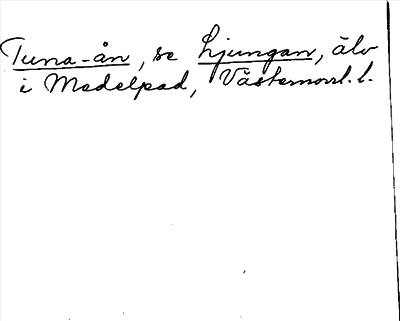 Tuna-ån, se Ljungan, älv
i Medelpad, Västernorrl. l.